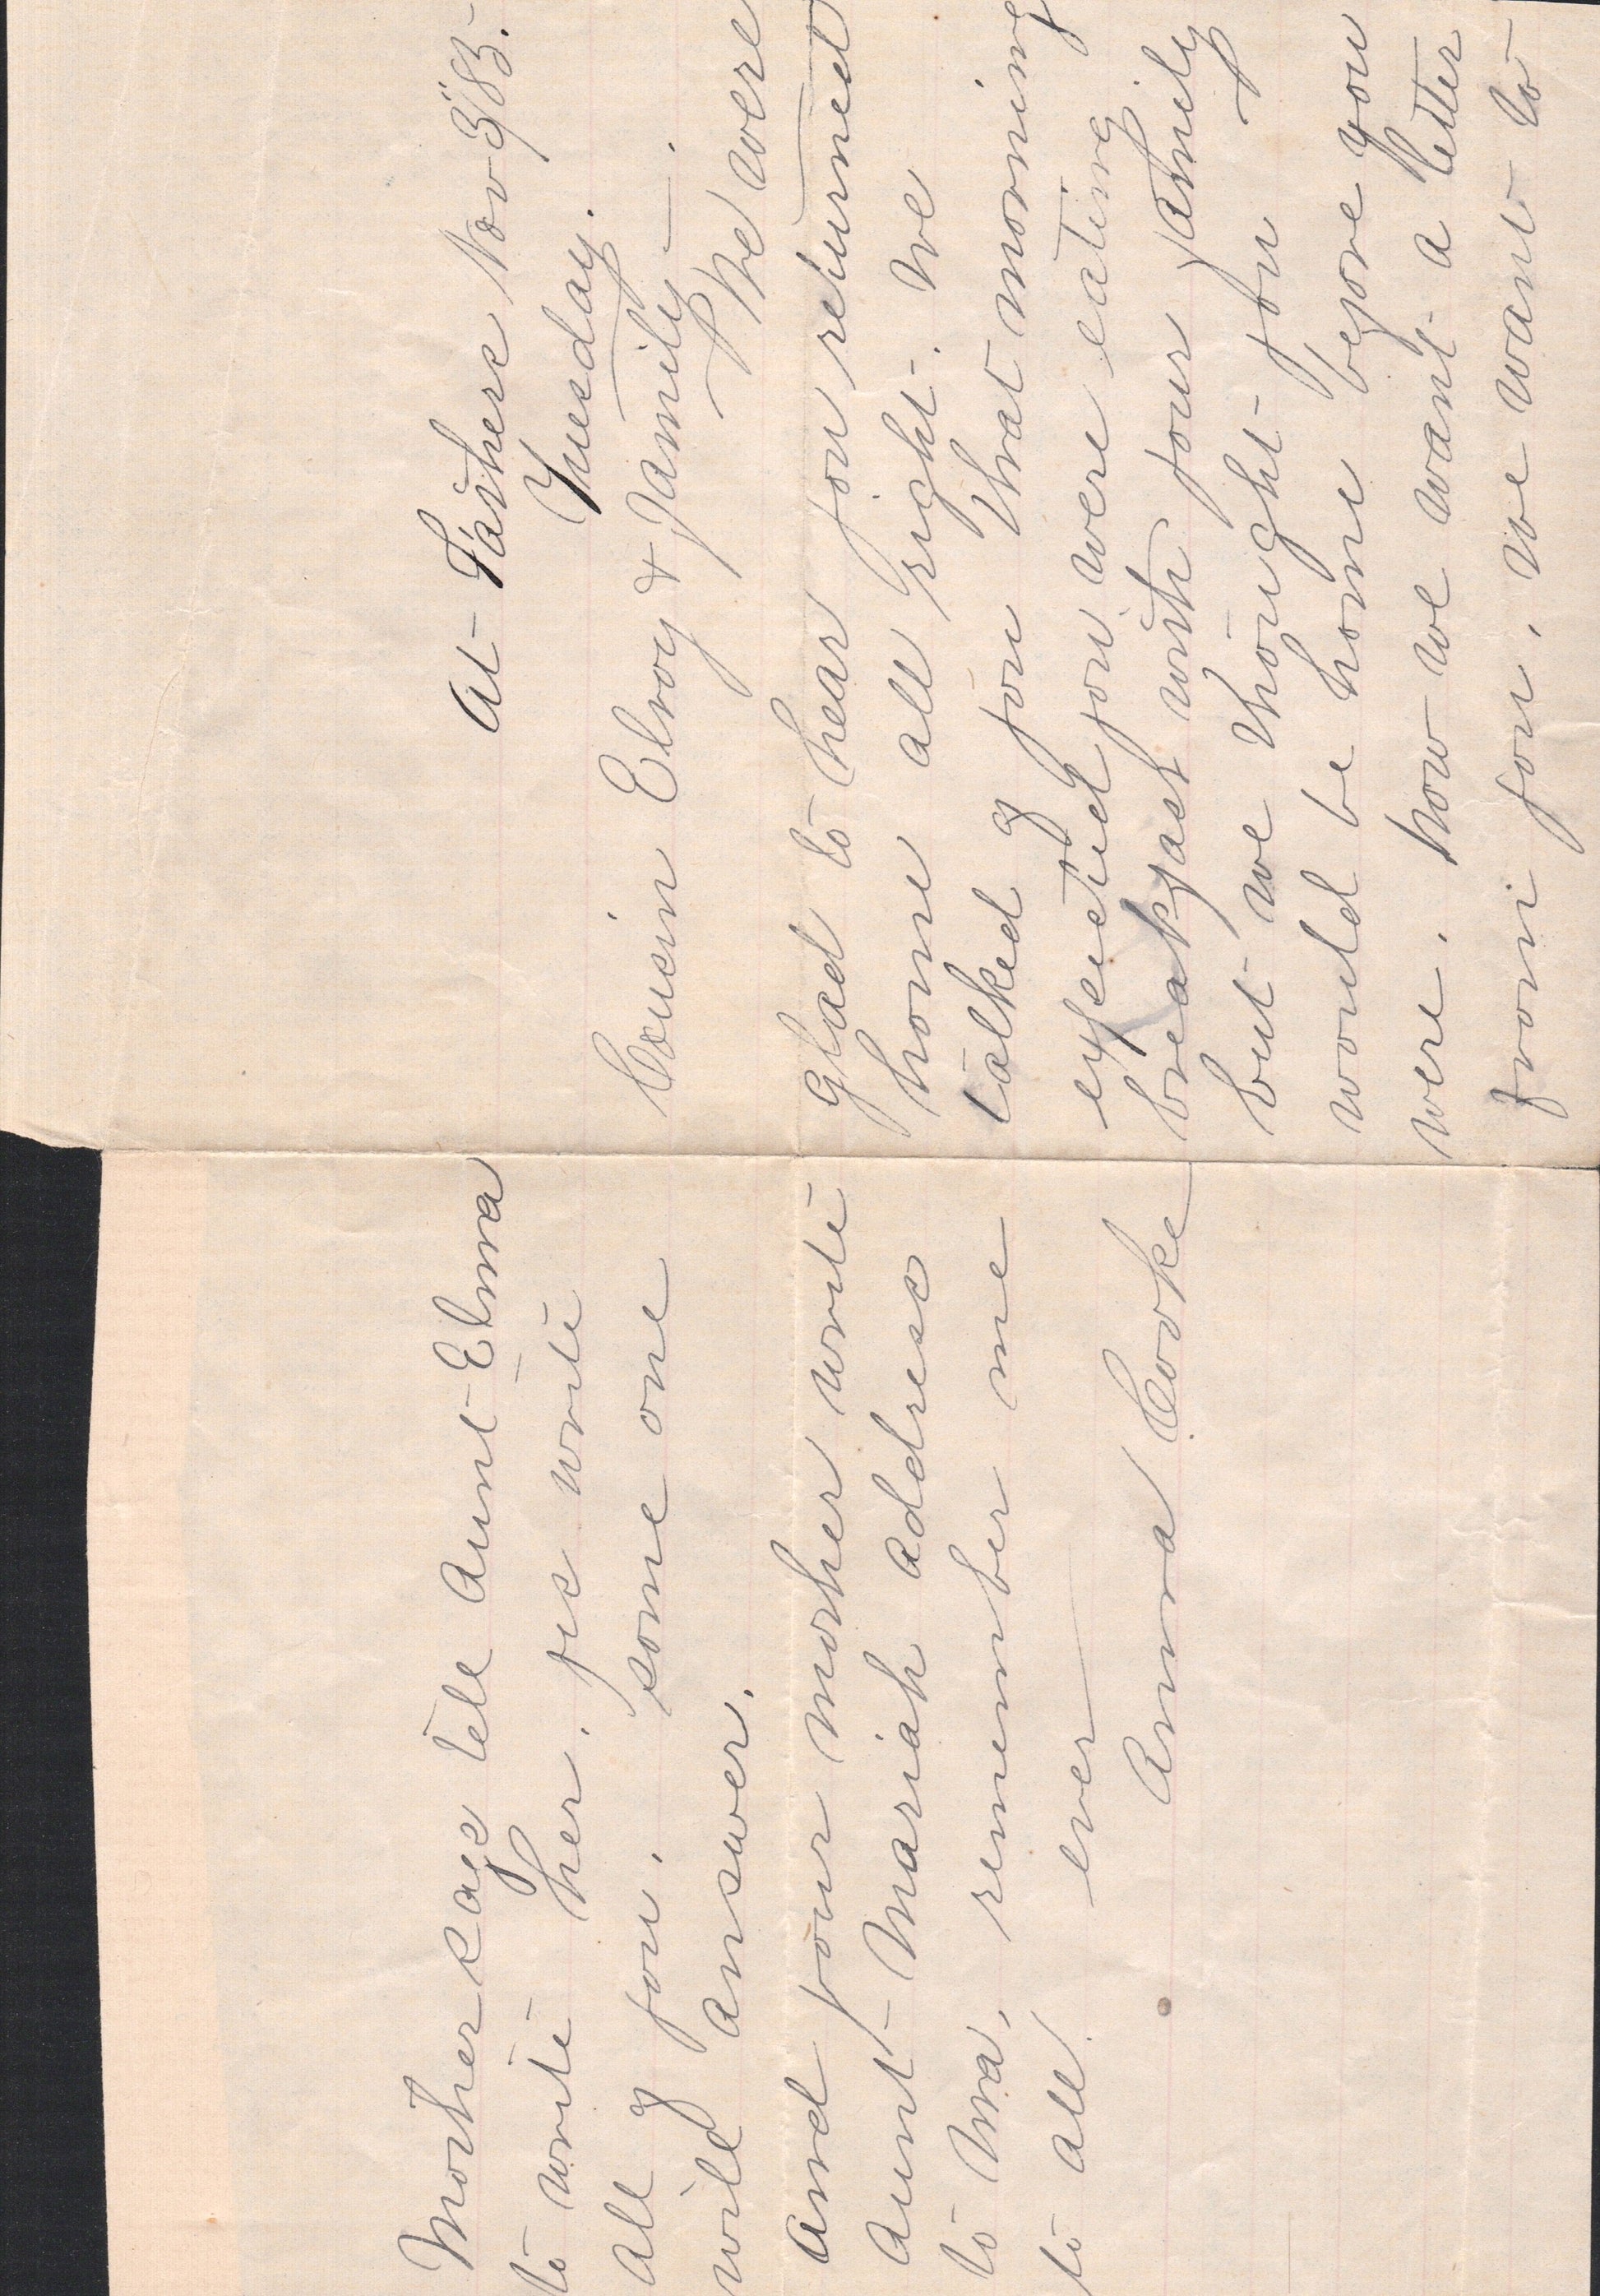 At Fathers Nov 3"/85.
Tuesday.
Cousin Elroy & family.
We were
glad to hear you returned
home all right. We
talked of you that morning
expected you were eating
breakfast with your family
but we thought you
would be home before you
were. now we want a letter
from you. we want to
Mother says tell Aunt Elma
to write her. yes write
all of you. some one
will answer.
And your mother write
Aunt Mariah address
to Ma, remember me
to all.
ever
Anna Cooke